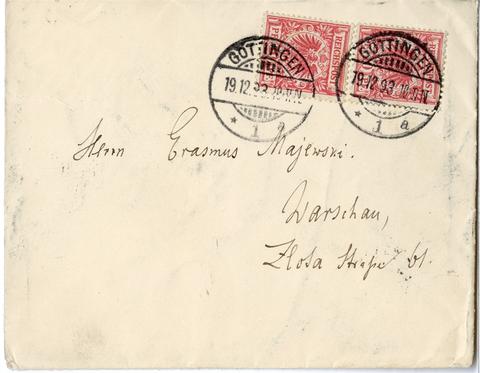 GÖTTINGEN
19.12.93.
* 1 a
REICHSPOST
GÖTTINGEN
19.12.93.
* 1 a
Herrn Erasmus Majewski.
Warschau,
Złota Straße 61.